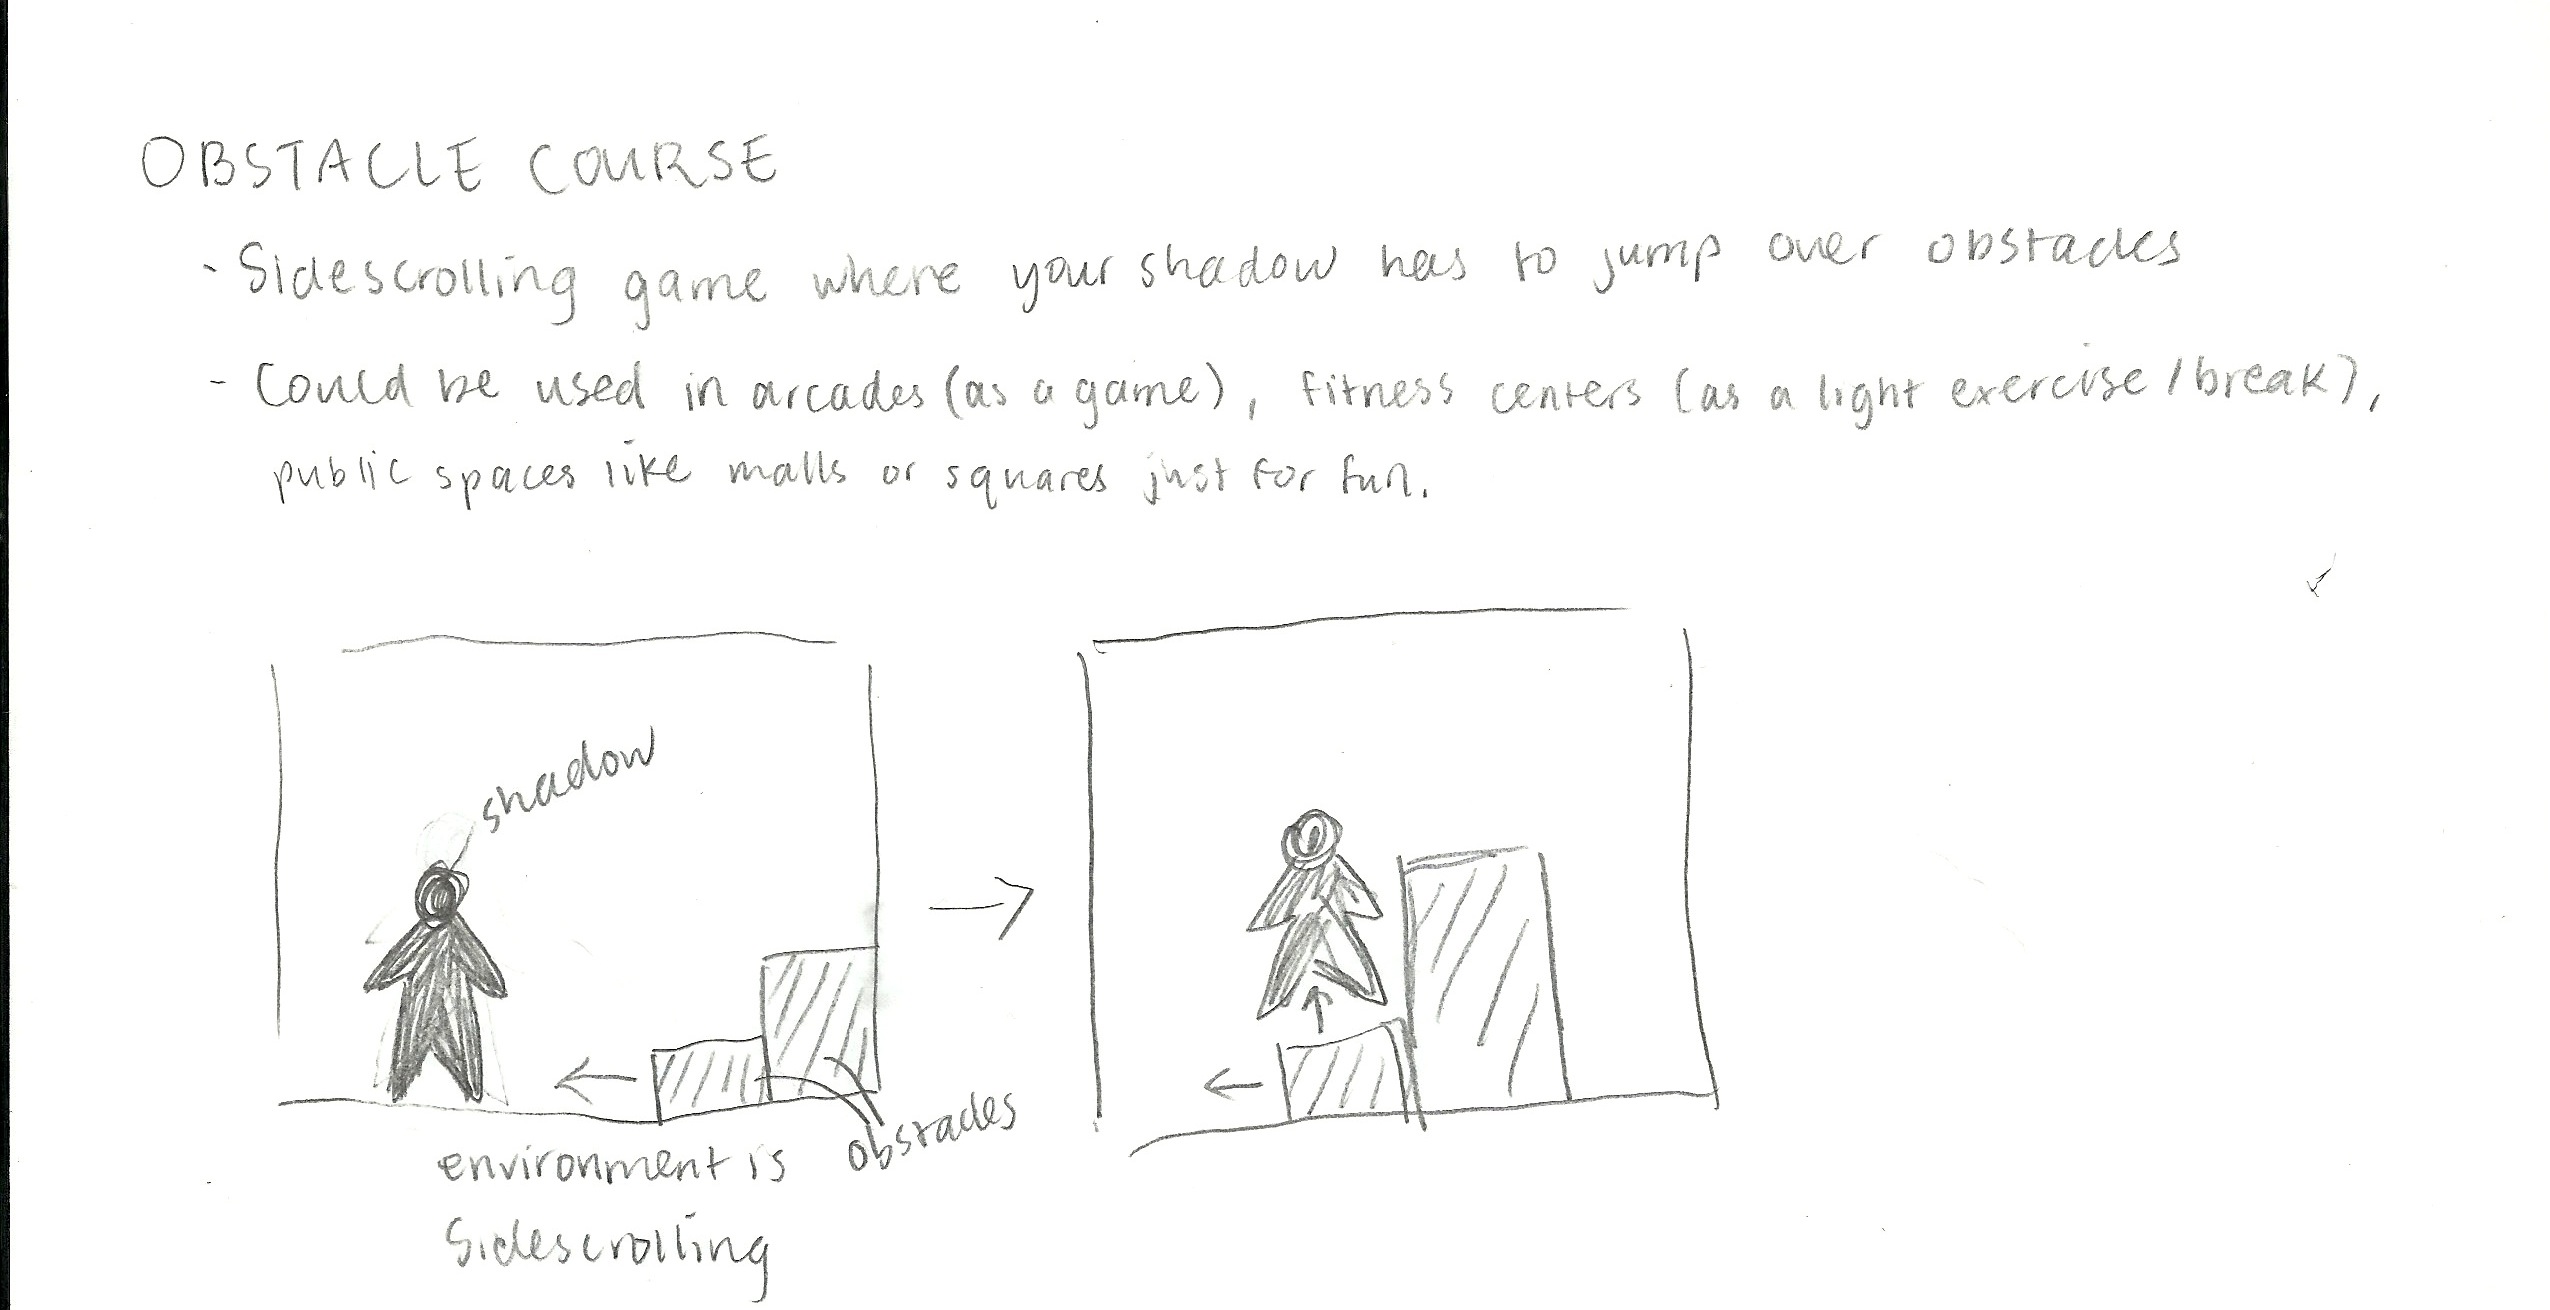 OBSTACLE COURSE
- Sidescrolling game where your shadow has to jump over obstacles
- Could be used in arcades (as a game), fitness centers (as a light exercise / break),
public spaces like malls or squares just for fun.
shadow
obstacles
environment is
Sidescrolling